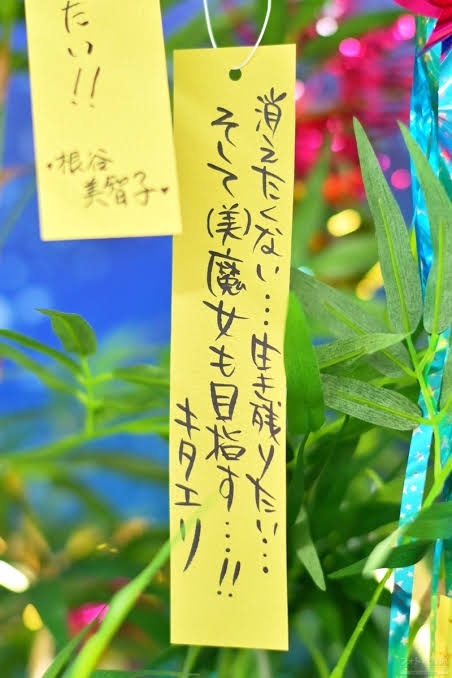 たい!!
♥根谷
美智子♥
消えたくない…生き残りたい…
そして(美)魔女も目指す…!!
キタエリ